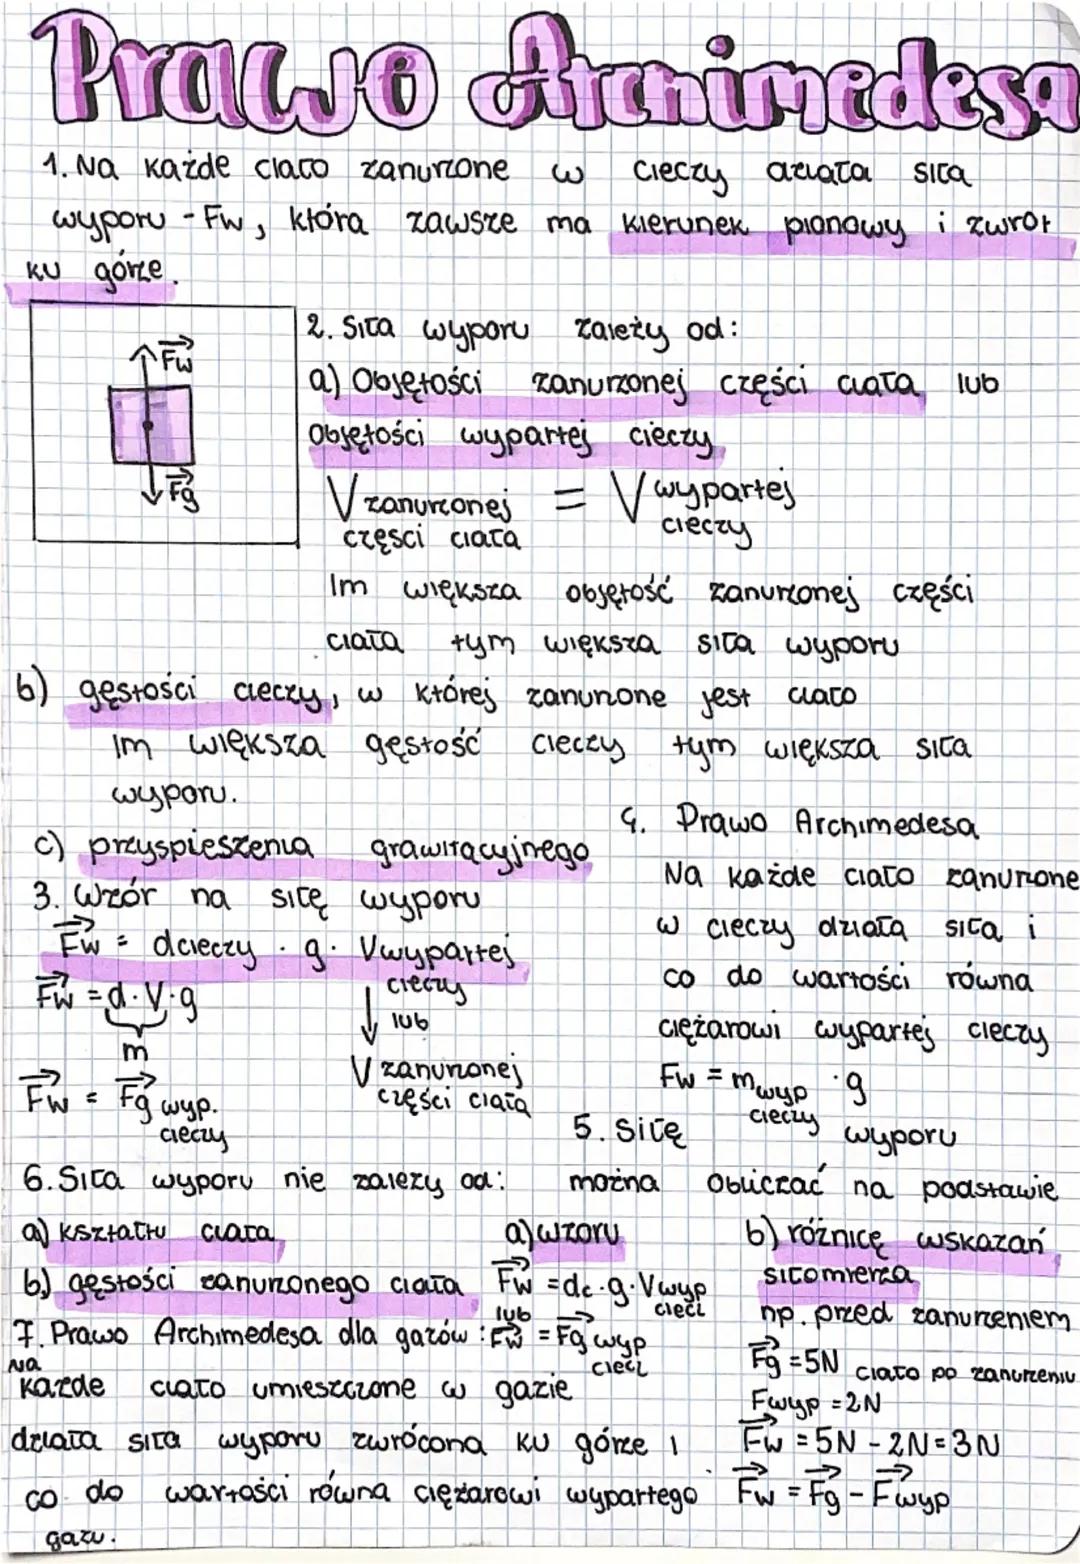 Prawo Archimedesa
1. Na każde ciało zanurzone w cieczy działa siła
wyporu - Fw, która zawsze ma kierunek pionowy i zwrot
ku górze.
Fw
Fg
2. Siła wyporu zależy od:
a) Objętości zanurzonej części ciała lub
objętości wypartej cieczy
V zanurzonej = V wypartej
części ciała cieczy
Im większa objętość zanurzonej części
ciała tym większa siła wyporu
b) gęstości cieczy, w której zanurzone jest ciało
Im większa gęstość cieczy tym większa siła
wyporu.
c) przyspieszenia grawitacyjnego
3. Wzór na siłę wyporu
Fw = dcieczy · g · Vwypartej
cieczy
Fw = d · V · g
m
lub
V zanurzonej
części ciała
Fw = Fg wyp.
cieczy
4. Prawo Archimedesa
Na każde ciało zanurzone
w cieczy działa siła i
co do wartości równa
ciężarowi wypartej cieczy
Fw = mwyp · g
cieczy
5. Siłę wyporu
można obliczać na podstawie
a) wzoru
Fw = dc · g · Vwyp
ciecz
lub
Fw = Fg wyp
ciecz
b) różnicę wskazań
siłomierza
np. przed zanurzeniem
Fg = 5N ciało po zanurzeniu
Fwyp = 2N
Fw = 5N - 2N = 3N
Fw = Fg - Fwyp
6. Siła wyporu nie zależy od:
a) kształtu ciała
b) gęstości zanurzonego ciała
7. Prawo Archimedesa dla gazów:
Na
każde ciało umieszczone w gazie
działa siła wyporu zwrócona ku górze i
co do wartości równa ciężarowi wypartego
gazu.